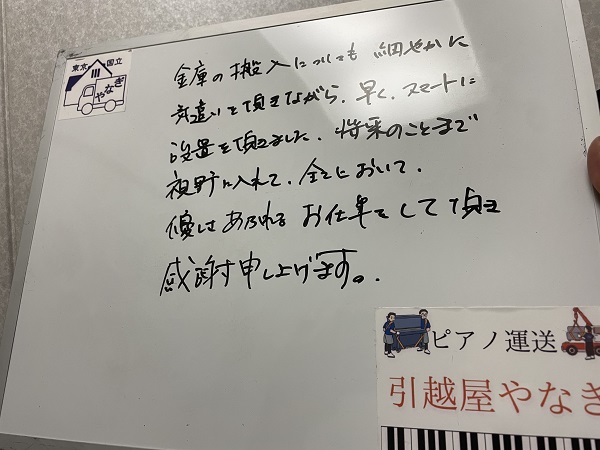 東京 国立
やなぎ
金庫の搬入についても 細やかに
気遣いを頂きながら、早く、スマートに
設置を頂きました。将来のことまで
視野に入れて、全てにおいて、
優しさあふれる お仕事をして頂き
感謝申し上げます。
ピアノ運送
引越屋やなぎ